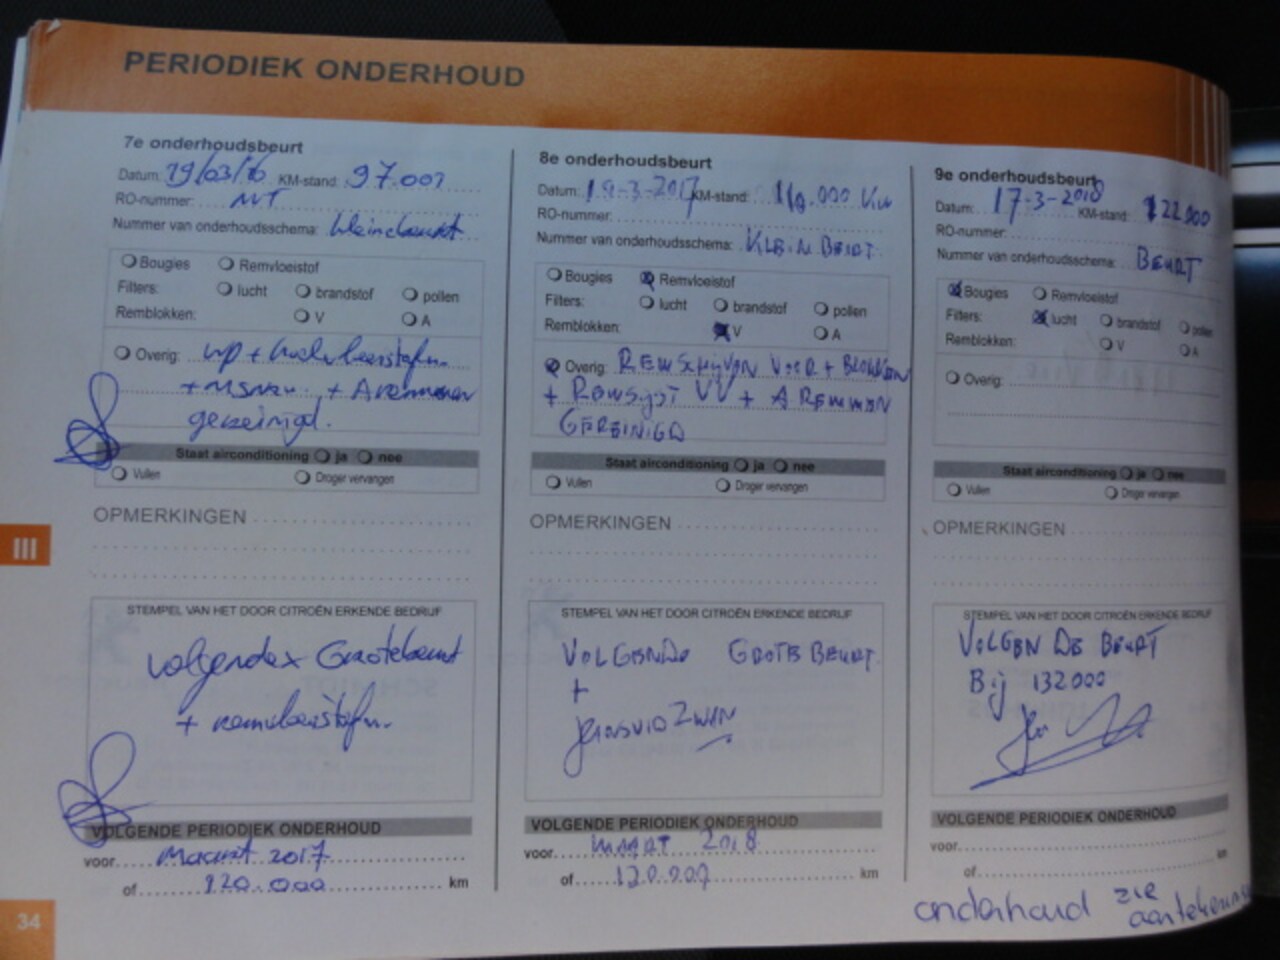 PERIODIEK ONDERHOUD
7e onderhoudsbeurt
Datum: 19/03/16 KM-stand: 97.001
RO-nummer:
Nummer van onderhoudsschema: kleinebeurt
Bougies Remvloeistof
Filters: lucht brandstof pollen
Remblokken: V A
Overig:
gereinigd.
Staat airconditioning ja nee
Vullen Droger vervangen
OPMERKINGEN
STEMPEL VAN HET DOOR CITROËN ERKENDE BEDRIJF
volgende Grotebeurt
+ remvloeistof
VOLGENDE PERIODIEK ONDERHOUD
voor Maart 2017
of 120.000 km
8e onderhoudsbeurt
Datum: 18-3-2017 KM-stand:
RO-nummer:
Nummer van onderhoudsschema: KLEIN BEURT
Bougies Remvloeistof
Filters: lucht brandstof pollen
Remblokken: V A
Overig: REMSCHYVEN VOOR + BLOKKEN
+ VV + A REMMEN
GEREINIGD
Staat airconditioning ja nee
Vullen Droger vervangen
OPMERKINGEN
STEMPEL VAN HET DOOR CITROËN ERKENDE BEDRIJF
VOLGENDE GROTE BEURT
+
VOLGENDE PERIODIEK ONDERHOUD
voor MAART 2018
of 120.000 km
9e onderhoudsbeurt
Datum: 17-3-2018 KM-stand: 122.000
RO-nummer:
Nummer van onderhoudsschema: BEURT
Bougies Remvloeistof
Filters: lucht brandstof pollen
Remblokken: V A
Overig:
Staat airconditioning ja nee
Vullen Droger vervangen
OPMERKINGEN
STEMPEL VAN HET DOOR CITROËN ERKENDE BEDRIJF
VOLGENDE BEURT
Bij 132000
VOLGENDE PERIODIEK ONDERHOUD
voor
of km
onderhoud zie
III
34